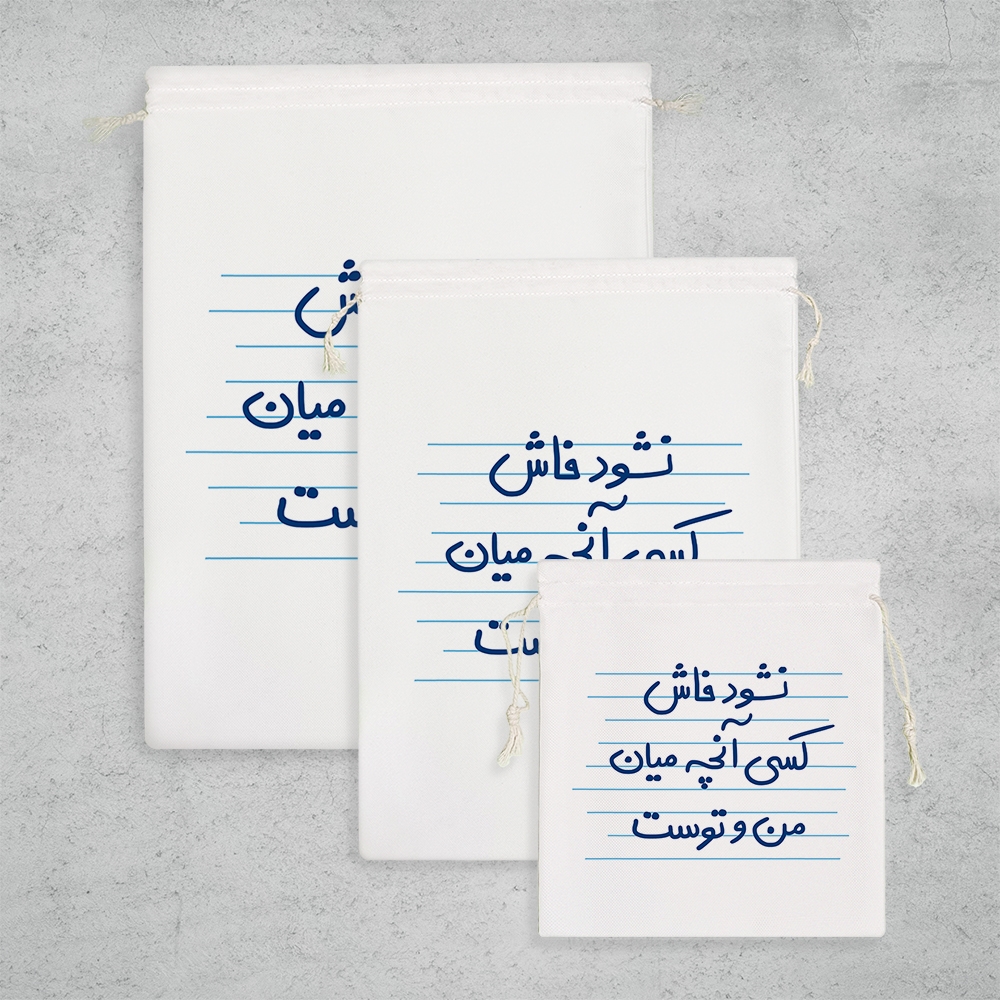 میان
نشود فاش
کسی آنچه میان
نشود فاش
کسی آنچه میان
من و توست